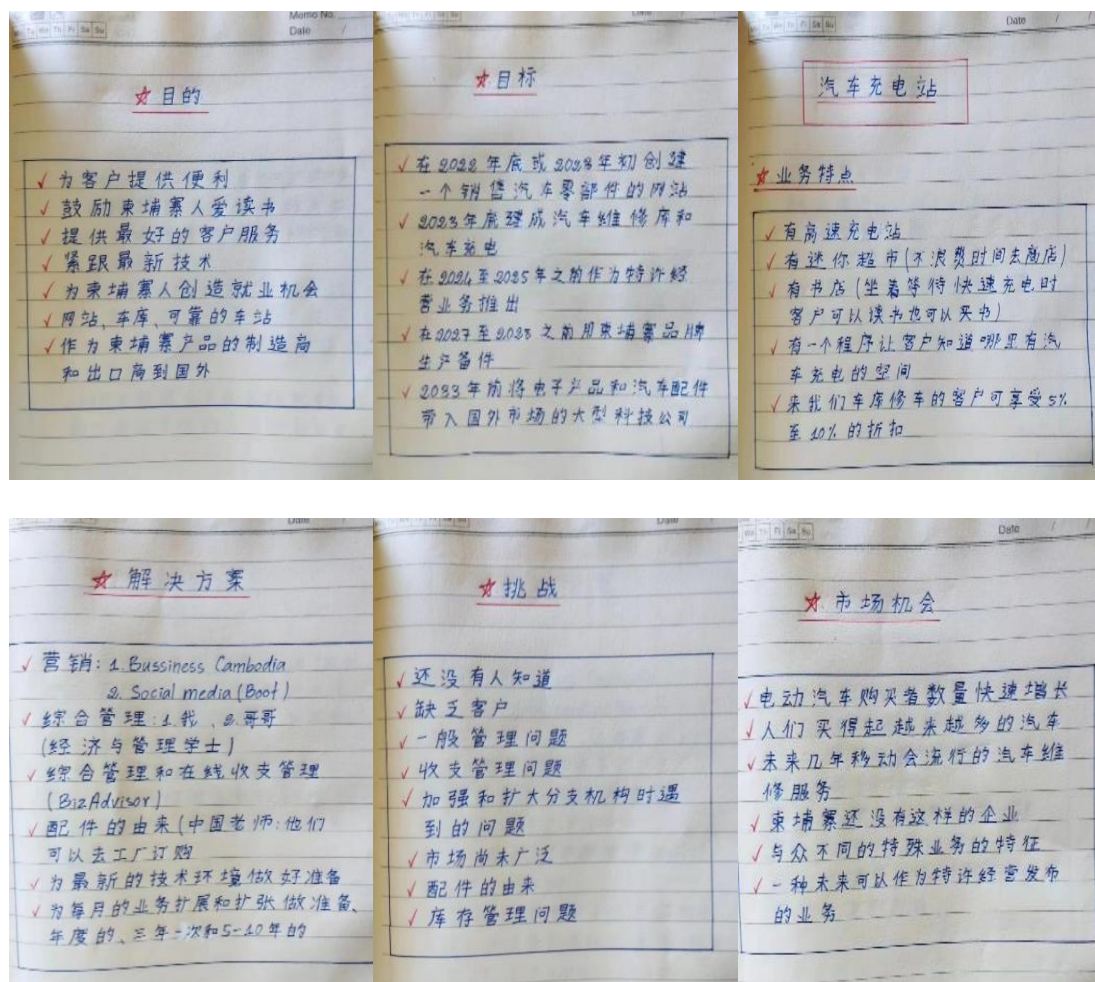 Memo No.
Tu We Th Fr Sa Su
Date /
☆目的
✓为客户提供便利
✓鼓励柬埔寨人爱读书
✓提供最好的客户服务
✓紧跟最新技术
✓为柬埔寨人创造就业机会
✓网站、车库、可靠的车站
✓作为柬埔寨产品的制造商
和出口商到国外
☆目标
✓在2022年底或2023年初创建
一个销售汽车零部件的网站
✓2023年底建成汽车维修库和
汽车充电
✓在2024至2025年之前作为特许经
营业务推出
✓在2027至2028之前用柬埔寨品牌
生产备件
✓2033年前将电子产品和汽车配件
带入国外市场的大型科技公司
Date
汽车充电站
☆业务特点
✓有高速充电站
✓有迷你超市(不浪费时间去商店)
✓有书店(坐着等待快速充电时
客户可以读书也可以买书)
✓有一个程序让客户知道哪里有汽
车充电的空间
✓来我们车库修车的客户可享受5%
至10%的折扣
Date
☆解决方案
✓营销:1.Bussiness Cambodia
2. Social media (Boot)
✓综合管理:1.我、2.哥哥
(经济与管理学士)
✓综合管理和在线收支管理
(BizAdvisor)
✓配件的由来(中国老师:他们
可以去工厂订购
✓为最新的技术环境做好准备
✓为每月的业务扩展和扩张做准备、
年度的、三年一次和5-10年的
Date
☆挑战
✓还没有人知道
✓缺乏客户
✓一般管理问题
✓收支管理问题
✓加强和扩大分支机构时遇
到的问题
✓市场尚未广泛
✓配件的由来
✓库存管理问题
We Th Fr Sa Su
Date
☆市场机会
✓电动汽车购买者数量快速增长
✓人们买得起越来越多的汽车
✓未来几年移动会流行的汽车维
修服务
✓柬埔寨还没有这样的企业
✓与众不同的特殊业务的特征
✓一种未来可以作为特许经营发布
的业务